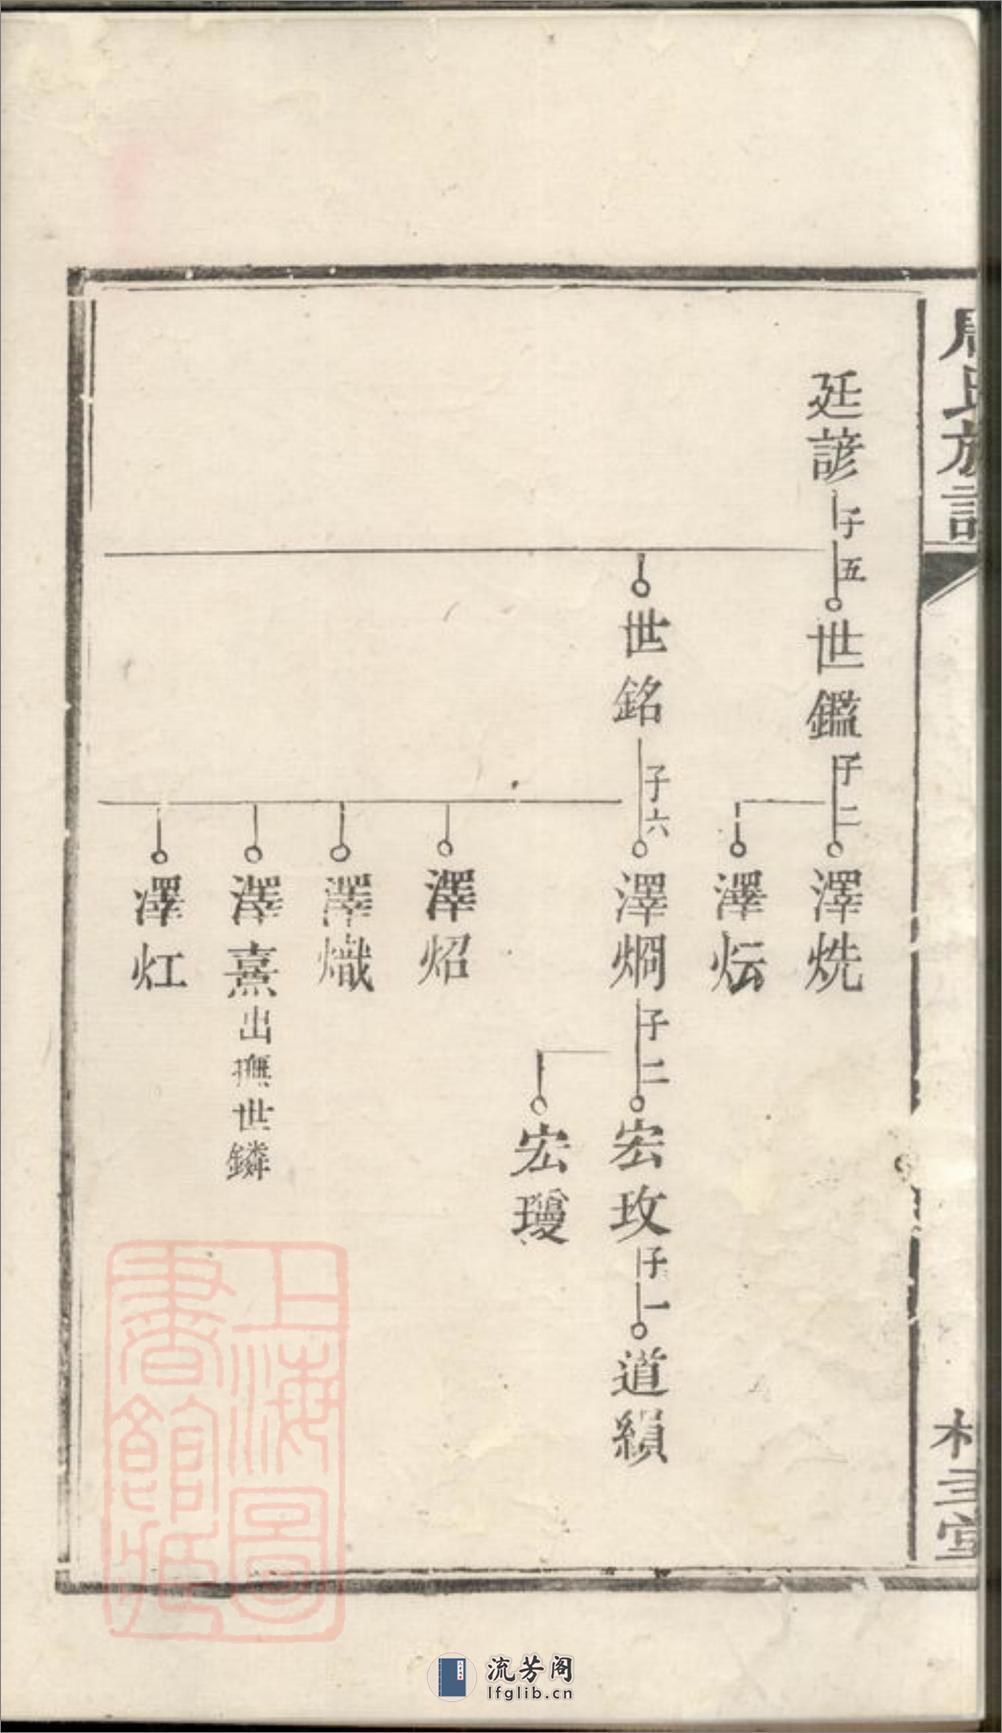 周氏族譜
廷諺 子五
世鑑 子二
澤烍
澤炛
世銘 子六
澤烱 子二
宏玫 子一
道縜
宏瓊
澤炤
澤熾
澤熹 出撫世鏻
澤灴
上海圖書館藏
流芳阁
lfglib.cn